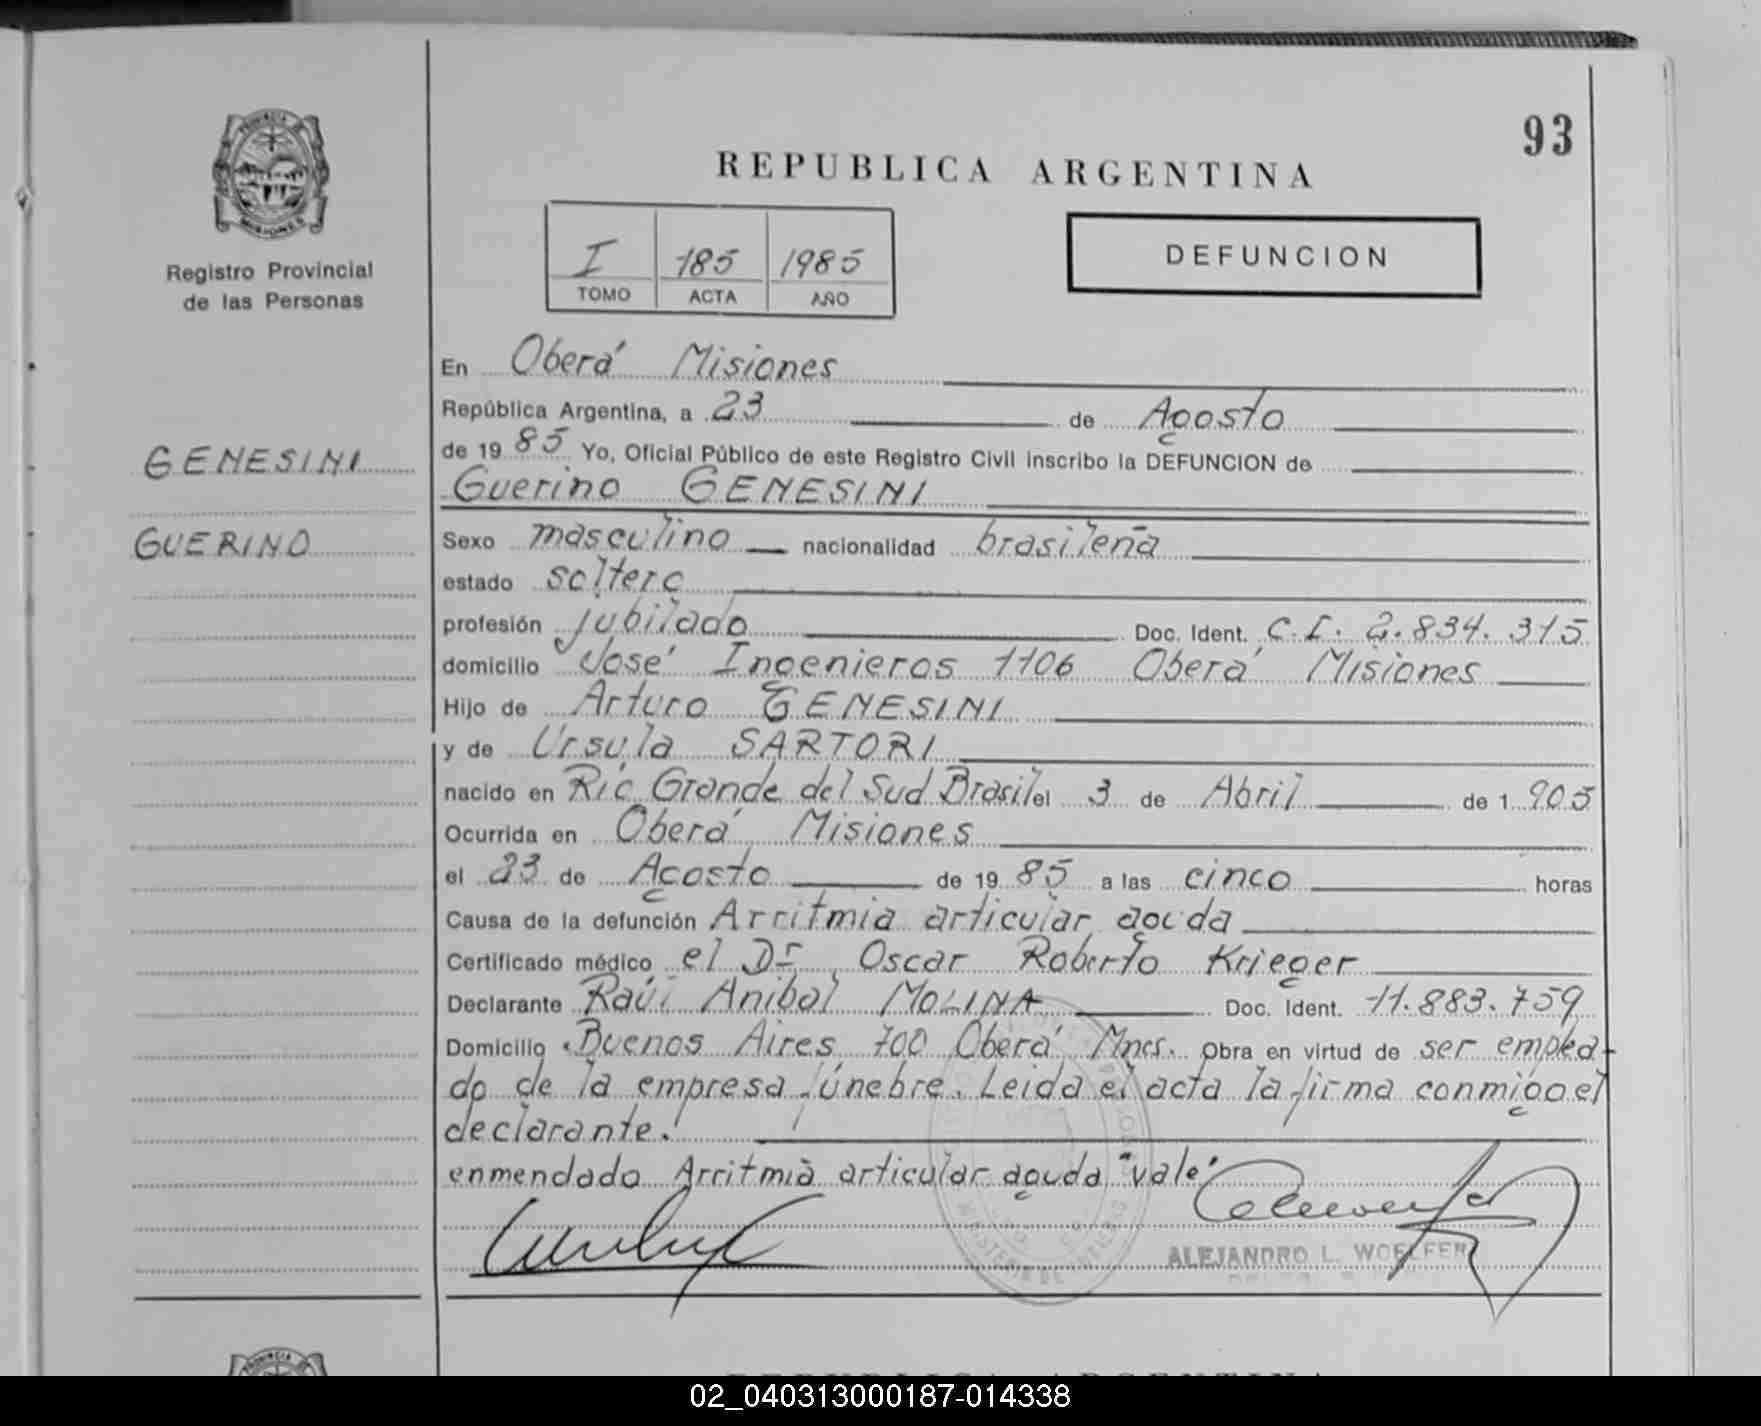 93
REPUBLICA ARGENTINA
PROVINCIA DE
MISIONES
Registro Provincial
de las Personas
I 185 1985
TOMO ACTA AÑO
DEFUNCION
En Oberá Misiones
República Argentina, a 23 de Agosto
GENESINI
de 19 85 Yo, Oficial Público de este Registro Civil inscribo la DEFUNCION de
Guerino GENESINI
GUERINO
Sexo masculino nacionalidad brasileña
estado soltero
profesión jubilado Doc. Ident. C.I. 2.834.315
domicilio José Ingenieros 1106 Oberá Misiones
Hijo de Arturo GENESINI
y de Ursula SARTORI
nacido en Río Grande del Sud Brasil el 3 de Abril de 1 905
Ocurrida en Oberá Misiones
el 23 de Agosto de 19 85 a las cinco horas
Causa de la defunción Arritmia articular aguda
Certificado médico el Dr Oscar Roberto Krieger
Declarante Raúl Anibal MOLINA Doc. Ident. 11.883.759
Domicilio Buenos Aires 700 Oberá Mnes. Obra en virtud de ser emplea-
do de la empresa fúnebre. Leida el acta la firma conmigo el
declarante.
enmendado Arritmia articular aguda "vale"
ALEJANDRO L. WOELFERT
PROVINCIA
REPUBLICA ARGENTINA
02_040313000187-014338